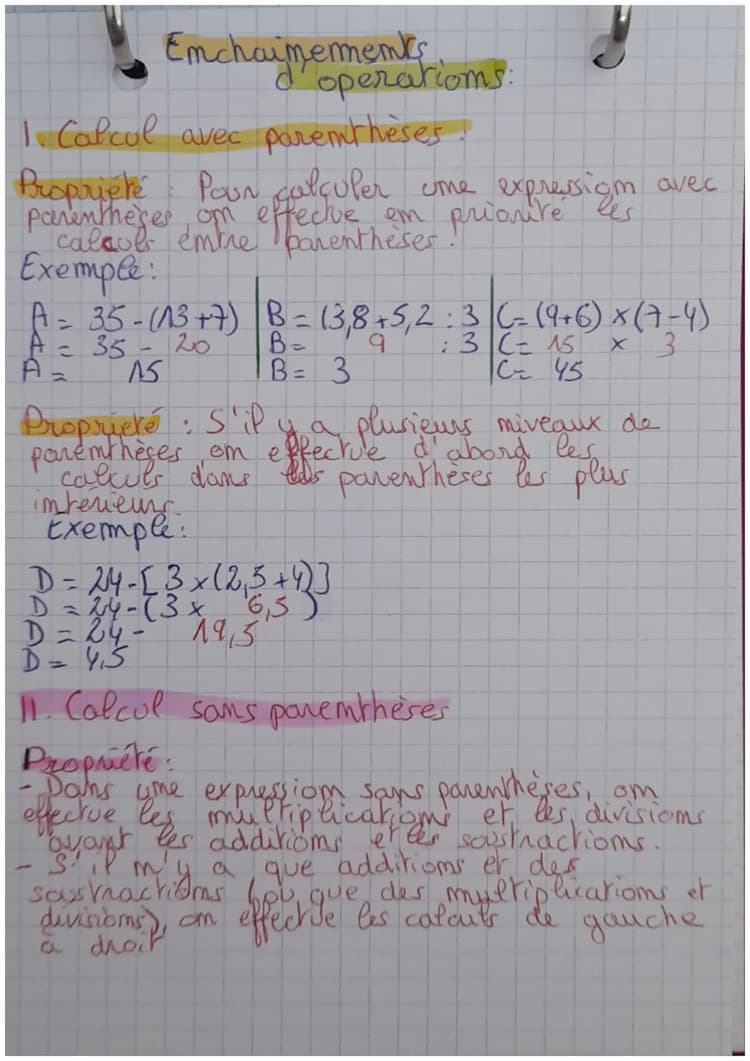 Enchaînements
d'operations:
I. Calcul avec parenthèses:
Propriété : Pour calculer une expression avec
parenthèses on effectue en priorité les
calculs entre parenthèses.
Exemple:
A = 35 - (13+7) | B = (3,8+5,2 : 3 | C = (9+6) × (7-4)
A = 35 - 20 | B = 9 : 3 | C = 15 × 3
A = 15 | B = 3 | C = 45
Propriété : S'il y a plusieurs niveaux de
parenthèses on effectue d'abord les
calculs dans les parenthèses les plus
intérieurs.
Exemple:
D = 24-[3 ×(2,5+4)]
D = 24-(3 × 6,5)
D = 24 - 19,5
D = 4,5
II. Calcul sans parenthèses
Propriété:
- Dans une expression sans parenthèses, on
effectue les multiplications et les divisions
avant les additions et les soustractions.
- S'il n'y a que additions et des
soustractions (ou que des multiplications et
divisions), on effectue les calculs de gauche
à droit